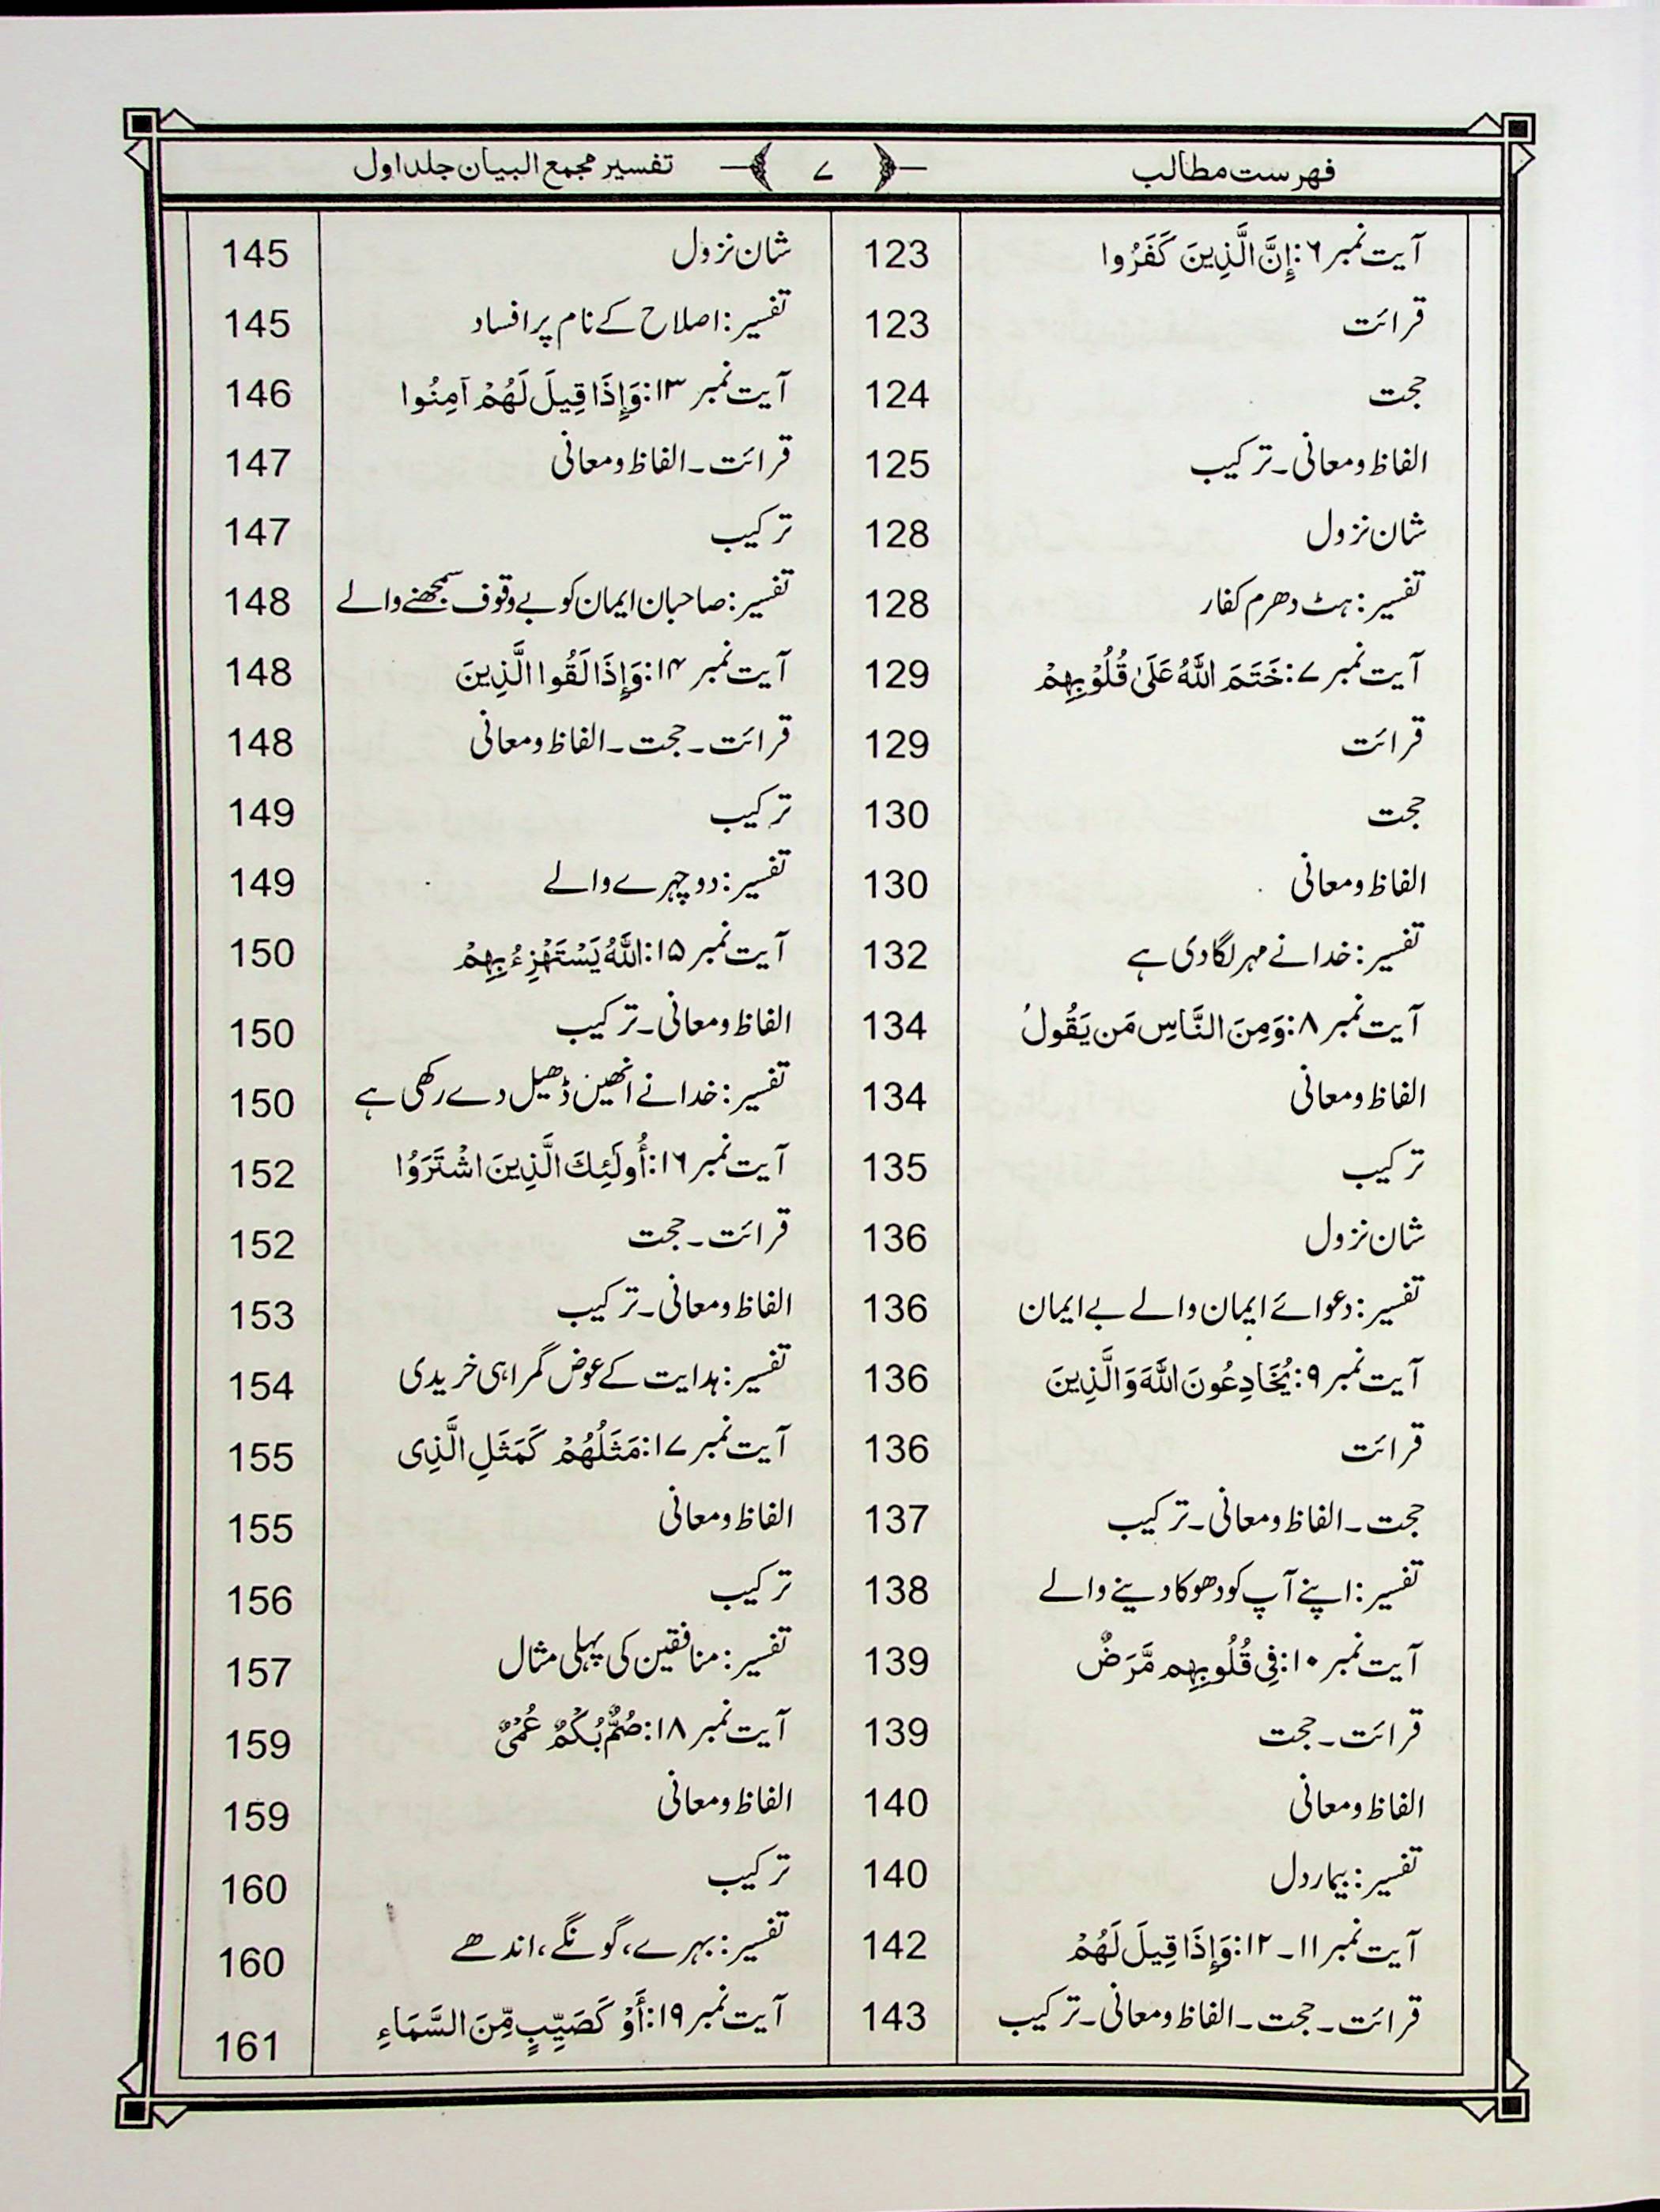 فهرست مطالب ۷ تفسیر مجمع البیان جلد اول
آیت نمبر ۶: إِنَّ الَّذِينَ كَفَرُوا 123
قرائت 123
حجت 124
الفاظ و معانی۔ ترکیب 125
شان نزول 128
تفسیر: ہٹ دھرم کفار 128
آیت نمبر ۷: خَتَمَ اللّٰهُ عَلَىٰ قُلُوْبِهِمْ 129
قرائت 129
حجت 130
الفاظ و معانی 130
تفسیر: خدا نے مہر لگا دی ہے 132
آیت نمبر ۸: وَمِنَ النَّاسِ مَن يَقُولُ 134
الفاظ و معانی 134
ترکیب 135
شان نزول 136
تفسیر: دعوائے ایمان والے بے ایمان 136
آیت نمبر ۹: يُخَادِعُونَ اللّٰهَ وَالَّذِينَ 136
قرائت 136
حجت۔ الفاظ و معانی۔ ترکیب 137
تفسیر: اپنے آپ کو دھوکا دینے والے 138
آیت نمبر ۱۰: فِي قُلُوبِهِم مَّرَضٌ 139
قرائت۔ حجت 139
الفاظ و معانی 140
تفسیر: بیمار دل 140
آیت نمبر ۱۱۔ ۱۲: وَإِذَا قِيلَ لَهُمْ 142
قرائت۔ حجت۔ الفاظ و معانی۔ ترکیب 143
شان نزول 145
تفسیر: اصلاح کے نام پر افساد 145
آیت نمبر ۱۳: وَإِذَا قِيلَ لَهُمْ آمِنُوا 146
قرائت۔ الفاظ و معانی 147
ترکیب 147
تفسیر: صاحبان ایمان کو بے وقوف سمجھنے والے 148
آیت نمبر ۱۴: وَإِذَا لَقُوا الَّذِينَ 148
قرائت۔ حجت۔ الفاظ و معانی 148
ترکیب 149
تفسیر: دو چہرے والے 149
آیت نمبر ۱۵: اللّٰهُ يَسْتَهْزِءُ بِهِمْ 150
الفاظ و معانی۔ ترکیب 150
تفسیر: خدا نے انھیں ڈھیل دے رکھی ہے 150
آیت نمبر ۱۶: أُولَئِكَ الَّذِينَ اشْتَرَوُا 152
قرائت۔ حجت 152
الفاظ و معانی۔ ترکیب 153
تفسیر: ہدایت کے عوض گمراہی خریدی 154
آیت نمبر ۱۷: مَثَلُهُمْ كَمَثَلِ الَّذِی 155
الفاظ و معانی 155
ترکیب 156
تفسیر: منافقین کی پہلی مثال 157
آیت نمبر ۱۸: صُمٌّ بُكْمٌ عُمْیٌ 159
الفاظ و معانی 159
ترکیب 160
تفسیر: بہرے، گونگے، اندھے 160
آیت نمبر ۱۹: أَوْ كَصَيِّبٍ مِّنَ السَّمَاءِ 161